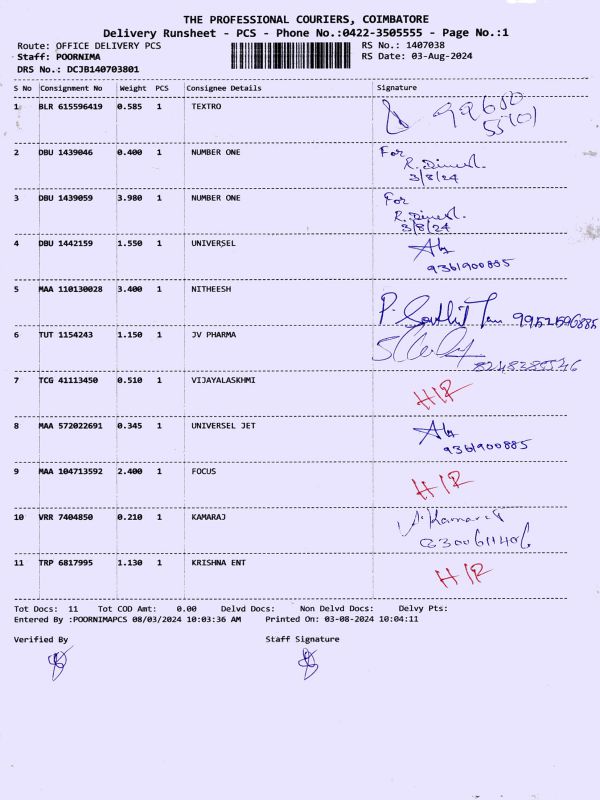 THE PROFESSIONAL COURIERS, COIMBATORE
Delivery Runsheet - PCS - Phone No.:0422-3505555 - Page No.:1
Route: OFFICE DELIVERY PCS RS No.: 1407038
Staff: POORNIMA RS Date: 03-Aug-2024
DRS No.: DCJB140703801
S No Consignment No Weight PCS Consignee Details Signature
1 BLR 615596419 0.585 1 TEXTRO
2 DBU 1439046 0.400 1 NUMBER ONE For
R. Dinesh.
3/8/24
3 DBU 1439059 3.980 1 NUMBER ONE For
R. Dinesh.
3/8/24
4 DBU 1442159 1.550 1 UNIVERSEL
9361900885
5 MAA 110130028 3.400 1 NITHEESH
6 TUT 1154243 1.150 1 JV PHARMA
7 TCG 41113450 0.510 1 VIJAYALASKHMI H/R
8 MAA 572022691 0.345 1 UNIVERSEL JET
9361900885
9 MAA 104713592 2.400 1 FOCUS H/R
10 VRR 7404850 0.210 1 KAMARAJ Kamaraj
11 TRP 6817995 1.130 1 KRISHNA ENT H/R
Tot Docs: 11 Tot COD Amt: 0.00 Delvd Docs: Non Delvd Docs: Delvy Pts:
Entered By :POORNIMAPCS 08/03/2024 10:03:36 AM Printed On: 03-08-2024 10:04:11
Verified By Staff Signature